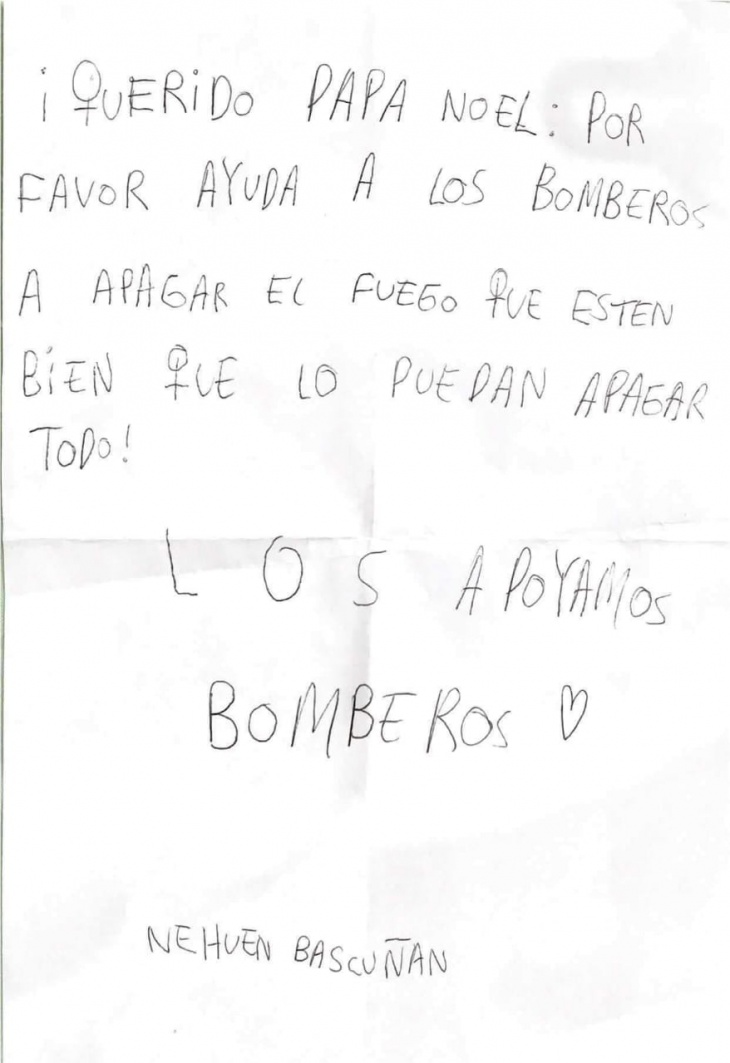 ¡QUERIDO PAPA NOEL: POR
FAVOR AYUDA A LOS BOMBEROS
A APAGAR EL FUEGO QUE ESTEN
BIEN QUE LO PUEDAN APAGAR
TODO!
LOS APOYAMOS
BOMBEROS ♡
NEHUEN BASCUÑAN